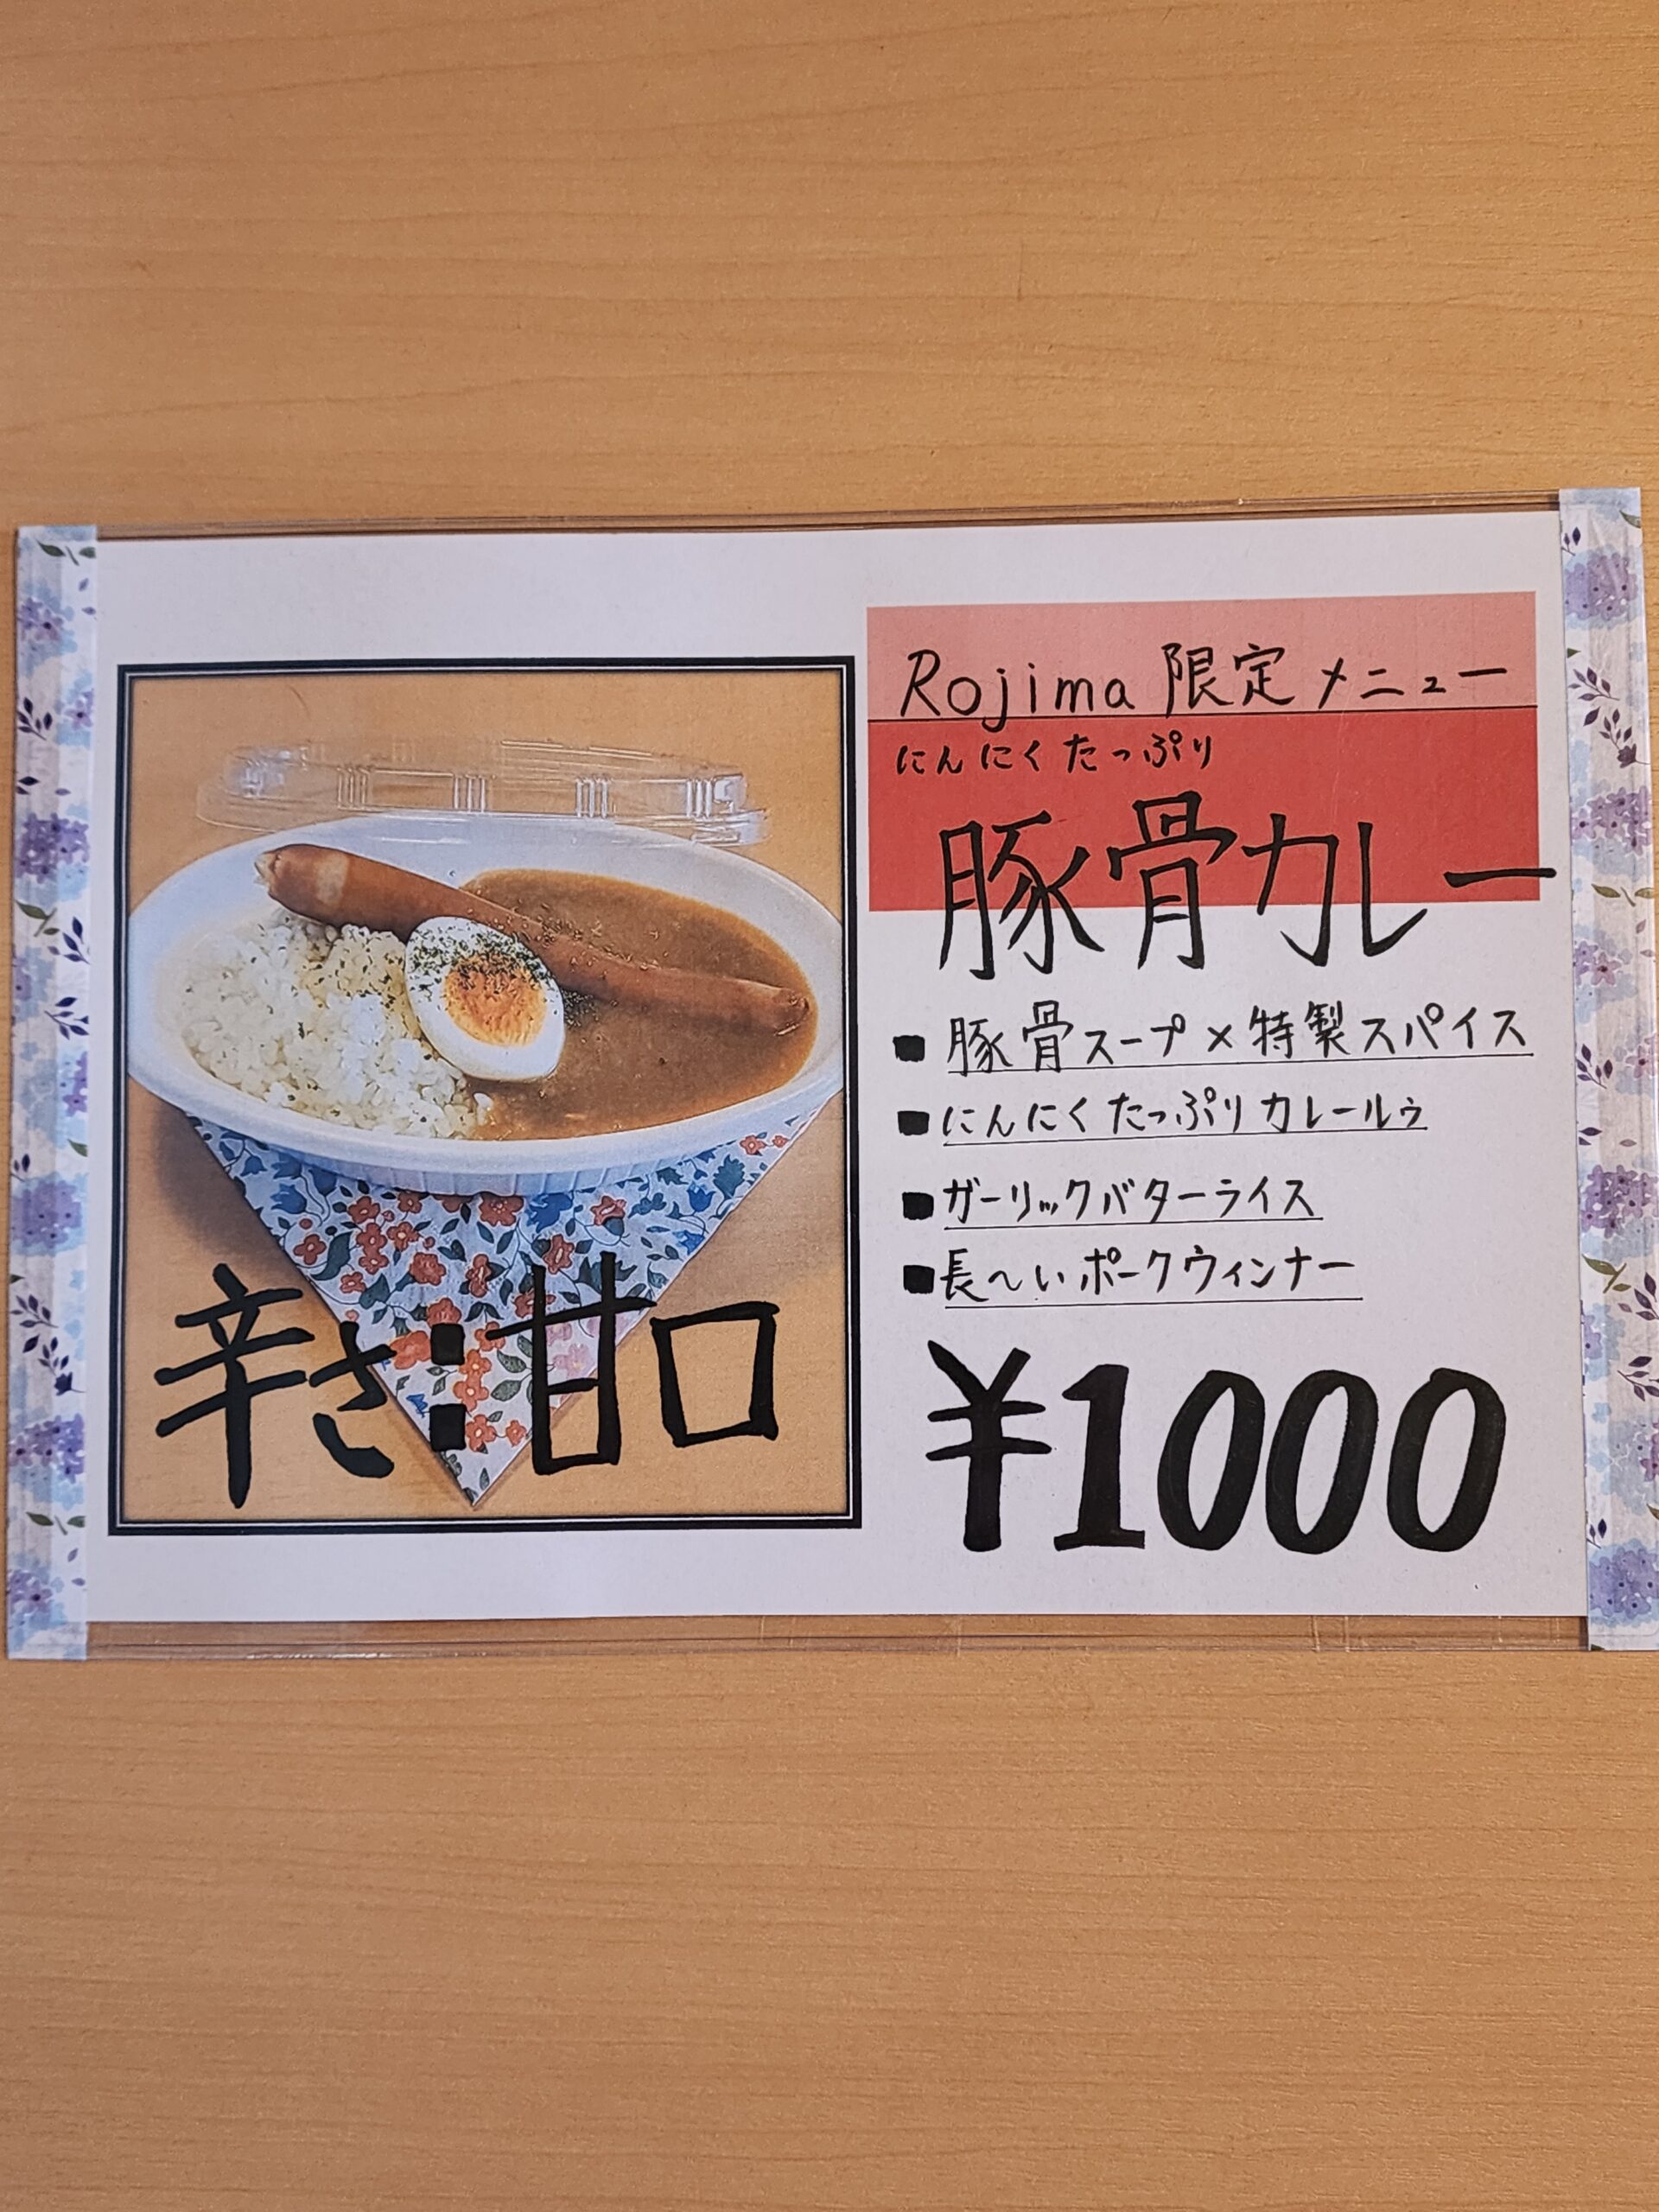 Rojima 限定メニュー
にんにくたっぷり
豚骨カレー
■ 豚骨スープ×特製スパイス
■ にんにくたっぷりカレールゥ
■ ガーリックバターライス
■ 長〜いポークウィンナー
¥1000
辛さ:甘口